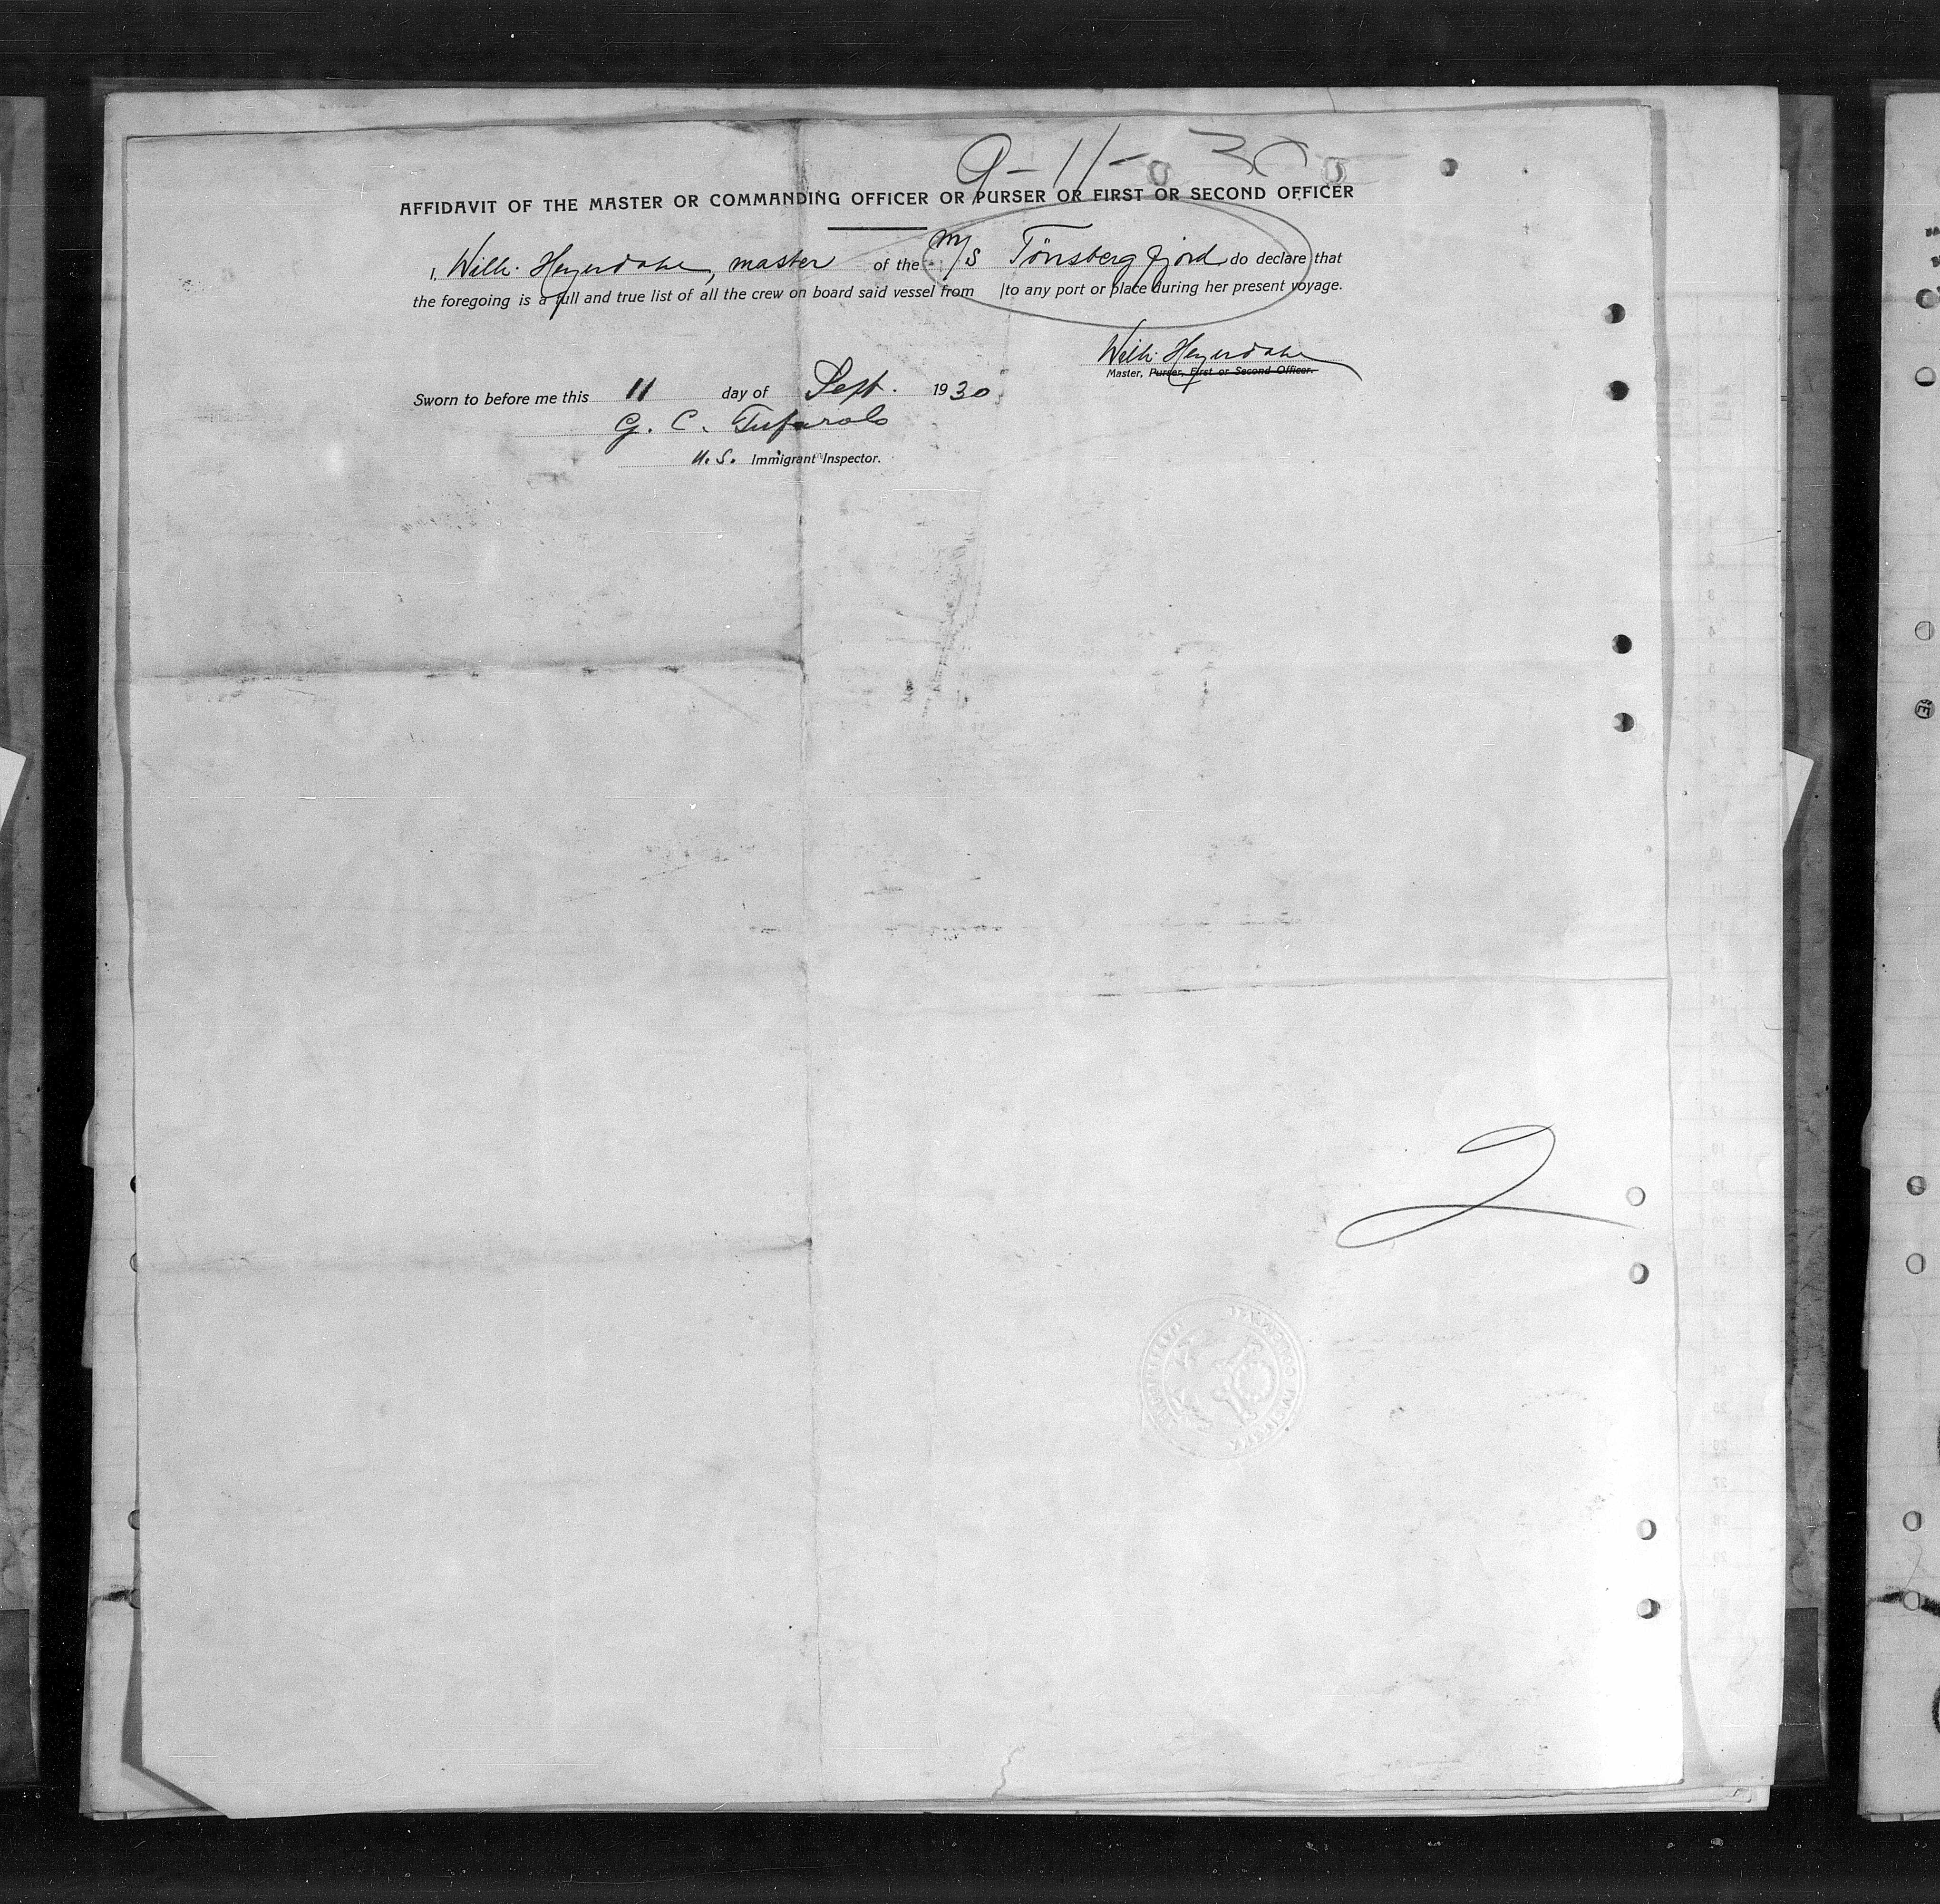 9-11-30
AFFIDAVIT OF THE MASTER OR COMMANDING OFFICER OR PURSER OR FIRST OR SECOND OFFICER
I, Wilh. Heyerdahl, master of the M/S Tönsbergfjord do declare that
the foregoing is a full and true list of all the crew on board said vessel from to any port or place during her present voyage.
Wilh. Heyerdahl
Master, Purser, First or Second Officer.
Sworn to before me this 11 day of Sept. 1930.
G. C. Tufarolo
U.S. Immigrant Inspector.
2